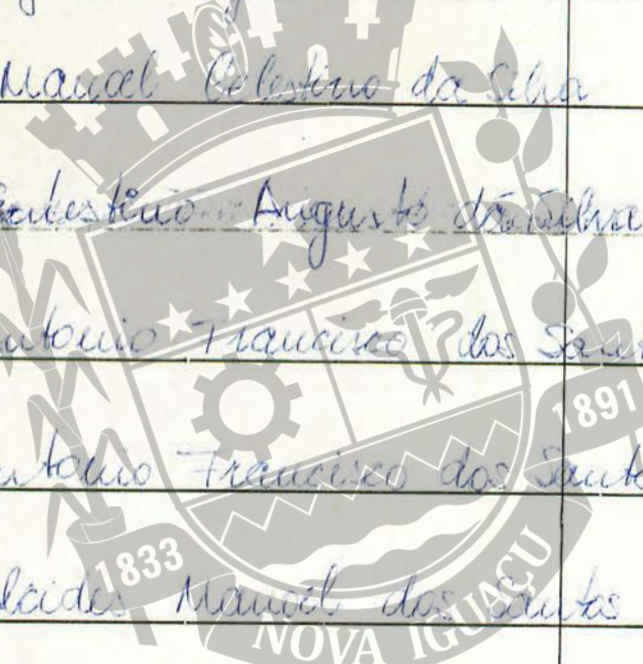 Manoel Celestino da Silva
Celestino Augusto da Silva
Antonio Francisco dos San
1891
Antonio Francisco dos Santo
1833
lcides Manoel dos Santos
NOVA IGUAÇU